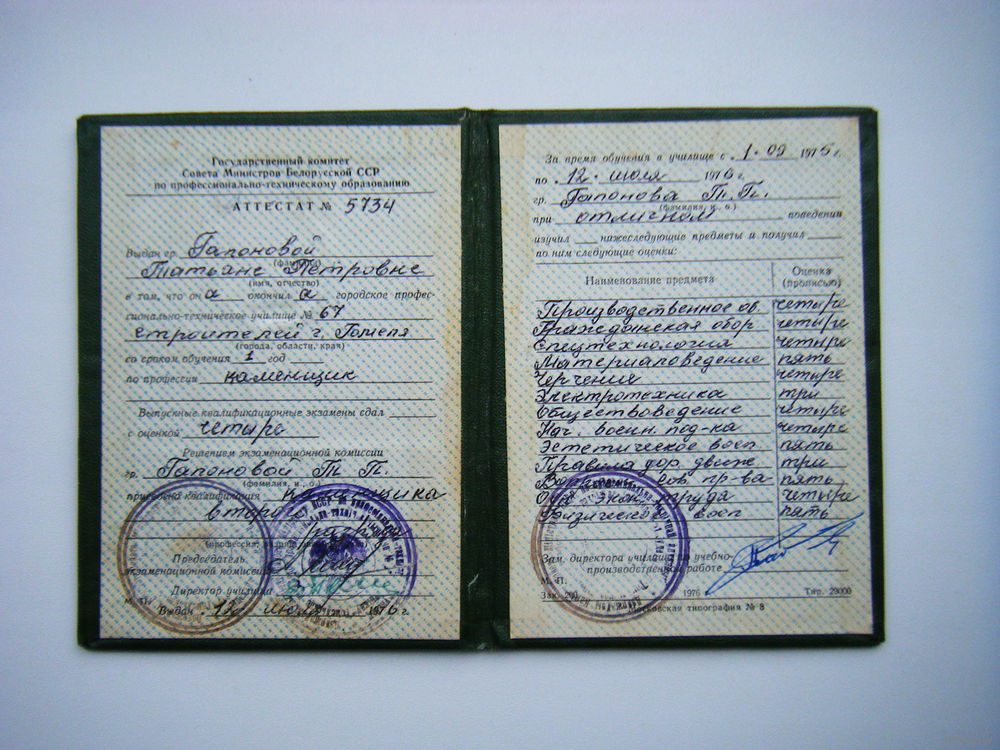 Государственный комитет
Совета Министров Белорусской ССР
по профессионально-техническому образованию
АТТЕСТАТ № 5734
Выдан гр. Гапоновой
(фамилия)
Татьяне Петровне
(имя, отчество)
в том, что он а окончил а городское профес-
сионально-техническое училище № 67
строителей г. Гомеля
(города, области, края)
со сроком обучения 1 год
по профессии каменщик
Выпускные квалификационные экзамены сдал
с оценкой четыре
Решением экзаменационной комиссии
гр. Гапоновой Т. П.
(фамилия, и., о.)
присвоена квалификация каменщика
Председатель
экзаменационной комиссии
Директор училища
М. П.
Выдан 12 июля 1976 г.
За время обучения в училище с 1.09 1975 г.
по 12. июля 1976 г.
гр. Гапонова Т. П.
(фамилия, и., о.)
при отличном поведении
изучил нижеследующие предметы и получил
по ним следующие оценки:
Наименование предмета Оценка (прописью)
Производственное об. четыре
Гражданская обор четыре
Спецтехнология четыре
Материаловедение пять
Черчения четыре
Электротехника три
Обществоведение четыре
Нач. воен. под-ка четыре
Эстетическое восп пять
Правила дор. движ три
пр-ва пять
труда четыре
Физическое восп пять
Зам. директора училища по учебно-
производственной работе
М. П.
1976 Тир. 29000
Московская типография № 8